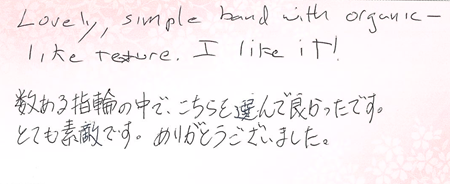 Lovely, simple band with organic-
like texture. I like it!
数ある指輪の中で、こちらを選んで良かったです。
とても素敵です。ありがとうございました。